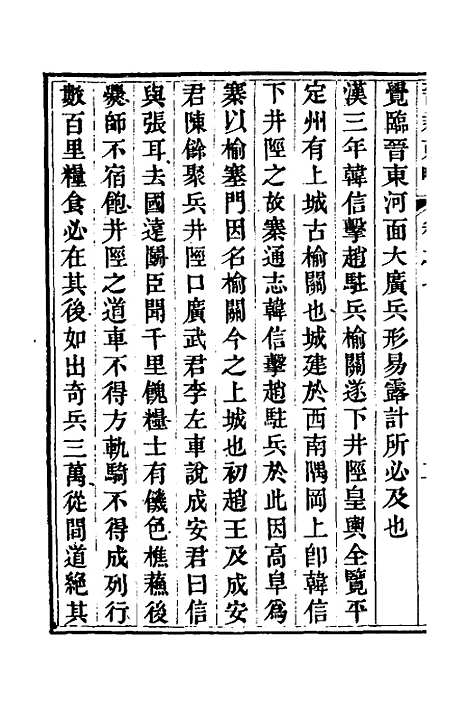 覺臨晉東河面大廣兵形易露計所必及也
漢三年韓信擊趙駐兵榆關遂下井陘皇輿全覽平
定州有上城古榆關也城建於西南隅岡上卽韓信
下井陘之故寨通志韓信擊趙駐兵於此因高阜爲
寨以榆塞門因名榆關今之上城也初趙王及成安
君陳餘聚兵井陘口廣武君李左車說成安君曰信
與張耳去國遠鬭臣聞千里餽糧士有饑色樵蘇後
爨師不宿飽井陘之道車不得方軌騎不得成列行
數百里糧食必在其後如出奇兵三萬從間道絕其